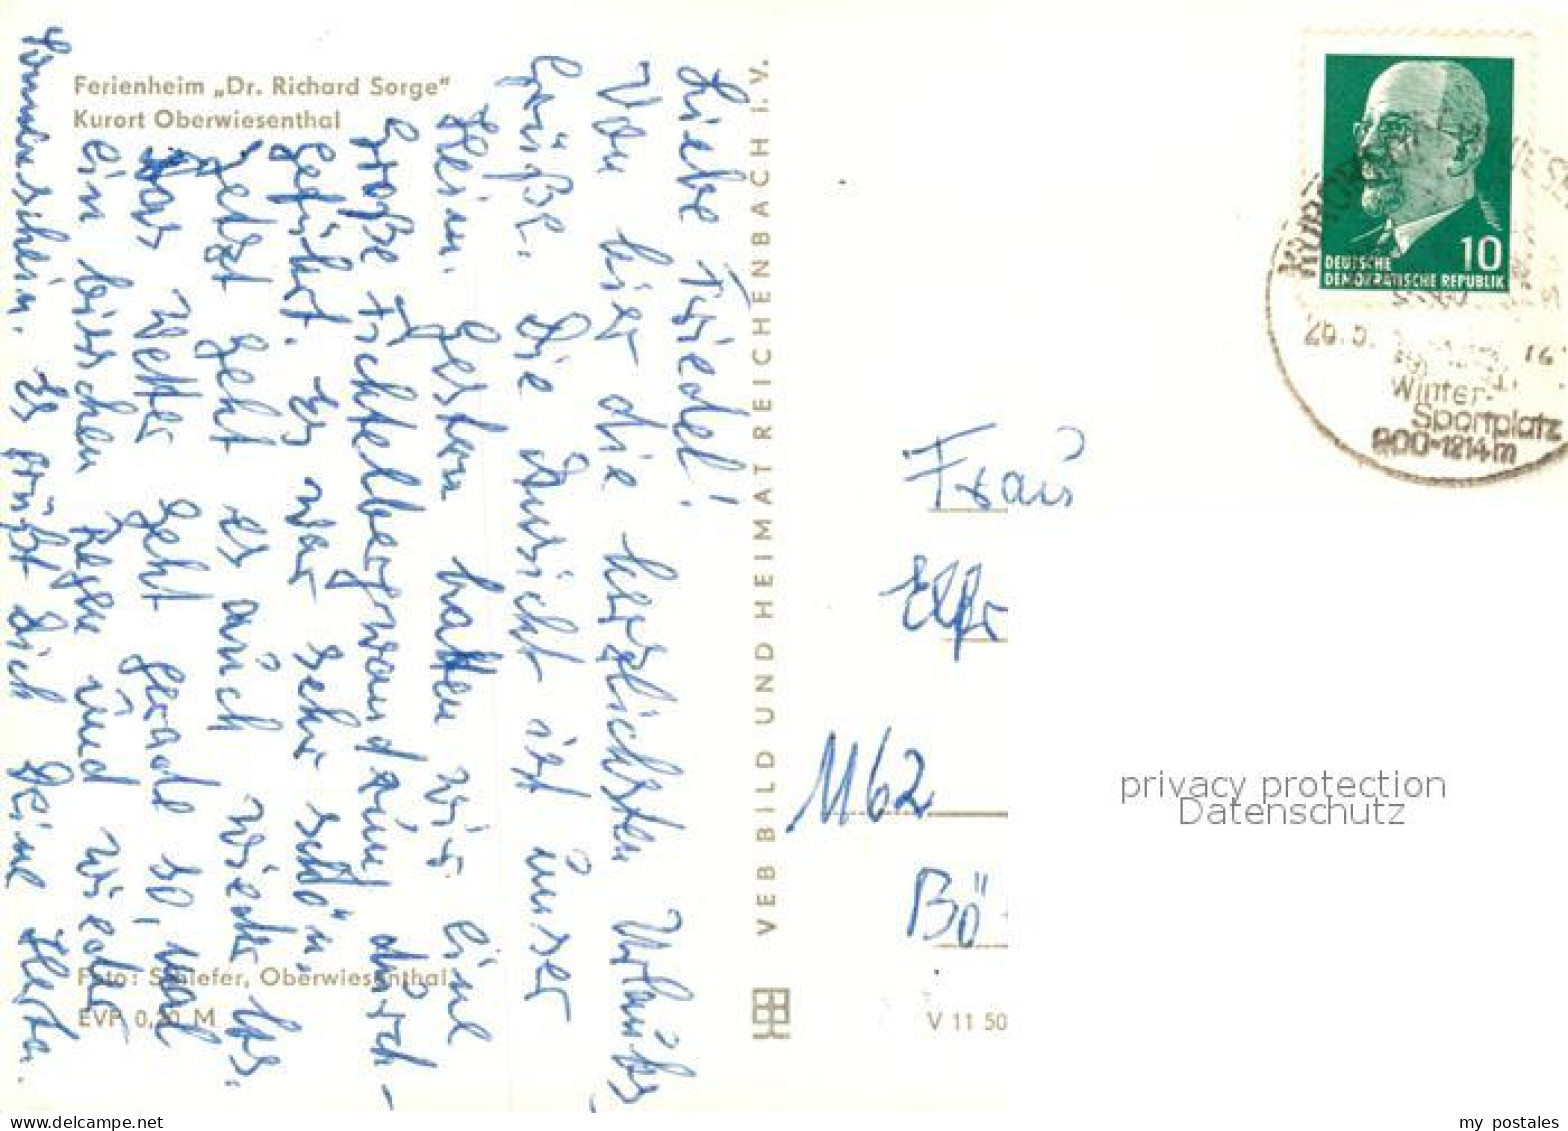 Ferienheim „Dr. Richard Sorge"
Kurort Oberwiesenthal
Liebe Friedel!
Von hier die herzlichsten Urlaubs
Grüße. Die Aussicht ist unser
Heim. Gestern hatten wir eine
große Fichtelbergwanderung durch-
geführt. Es war sehr schön.
Jetzt geht es auch wieder los.
Das Wetter geht gerade so, mal
ein bisschen Regen und wieder
Sonnenschein. Es grüßt Dich Deine Herta.
Foto: Schiefer, Oberwiesenthal
EVP 0,20 M
VEB BILD UND HEIMAT REICHENBACH i. V.
V 11 50
DEUTSCHE
DEMOKRATISCHE REPUBLIK
10
KURORT
26.5.
Winter-
Sportplatz
900-1214m
Frau
Elfr
1162
Bö
privacy protection
Datenschutz
my postales